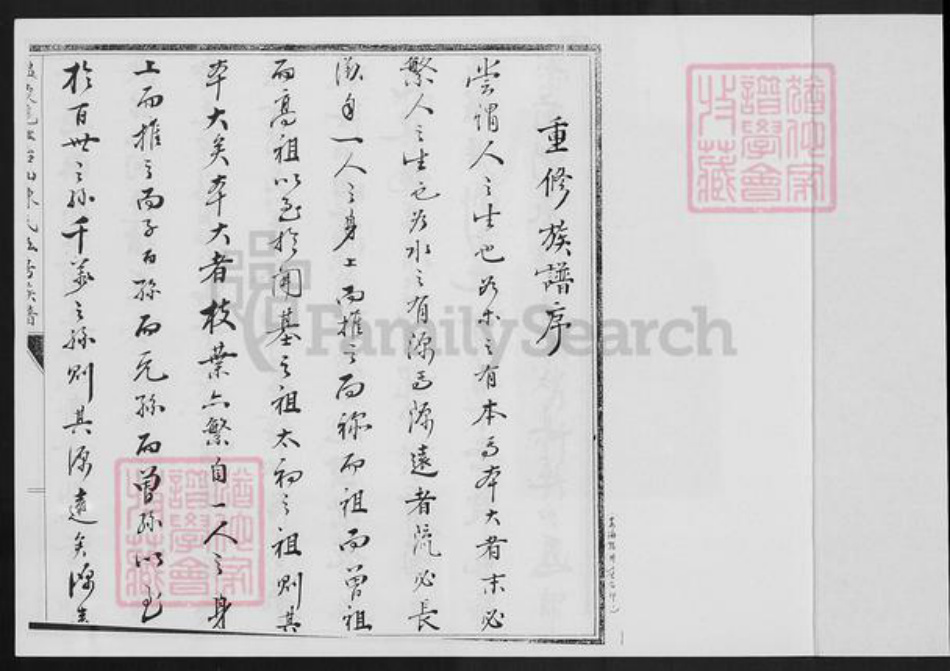 重修族譜序
嘗謂人之生也如木之有本焉本大者末必
繁人之生也如水之有源焉源遠者流必長
溯自一人之身上而推之而祢而祖而曾祖
而高祖以至於開基之祖太初之祖則其
本大矣本大者枝葉亦繁自一人之身
上而推之而子而孫而元孫而曾孫以至
於百世之孫千萬之孫則其源遠矣源遠
FamilySearch